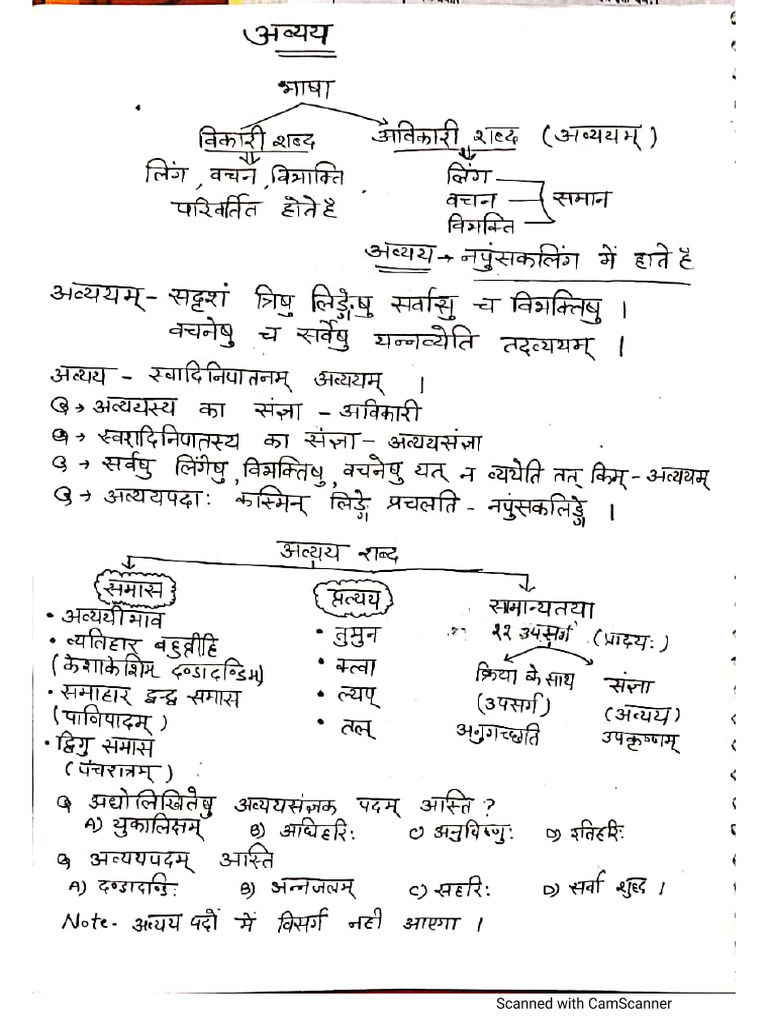 अव्यय
भाषा
विकारी शब्द अविकारी शब्द (अव्ययम्)
लिंग, वचन, विभक्ति लिंग
परिवर्तित होते है वचन समान
विभक्ति
अव्यय → नपुंसकलिंग में होते है
अव्ययम् - सदृशं त्रिषु लिङ्गेषु सर्वासु च विभक्तिषु ।
वचनेषु च सर्वेषु यन्नव्येति तदव्ययम् ।
अव्यय - स्वादिनिपातनम् अव्ययम् ।
Q → अव्ययस्य का संज्ञा - अविकारी
Q → स्वरादिनिपातस्य का संज्ञा - अव्ययसंज्ञा
Q → सर्वषु लिंगेषु, विभक्तिषु, वचनेषु यत् न व्ययेति तत् किम् - अव्ययम्
Q → अव्ययपदाः कस्मिन् लिङ्गे प्रचलति - नपुंसकलिङ्गे ।
अव्यय शब्द
समास प्रत्यय सामान्यतया
• अव्ययीभाव • तुमुन २२ उपसर्ग (प्रादयः)
• व्यतिहार बहुव्रीहि
(केशाकेशिम दण्डादण्डिम) • क्त्वा क्रिया के साथ संज्ञा
• समाहार द्वन्द्व समास • ल्यप् (उपसर्ग) (अव्यय)
(पाणिपादम्) • तल् अनुगच्छति उपकृष्णम्
• द्विगु समास
(पंचरात्रम्)
Q अधोलिखितेषु अव्ययसंज्ञक पदम् अस्ति ?
A) थुकालिक्षम् B) अधिहरिः C) अनुविष्णुः D) इतिहरिः
Q अव्ययपदम् अस्ति
A) दण्डादण्डिः B) अन्नजलम् C) सहरिः D) सर्वा शुद्ध ।
Note- अव्यय पदों में विसर्ग नही आएगा ।
Scanned with CamScanner